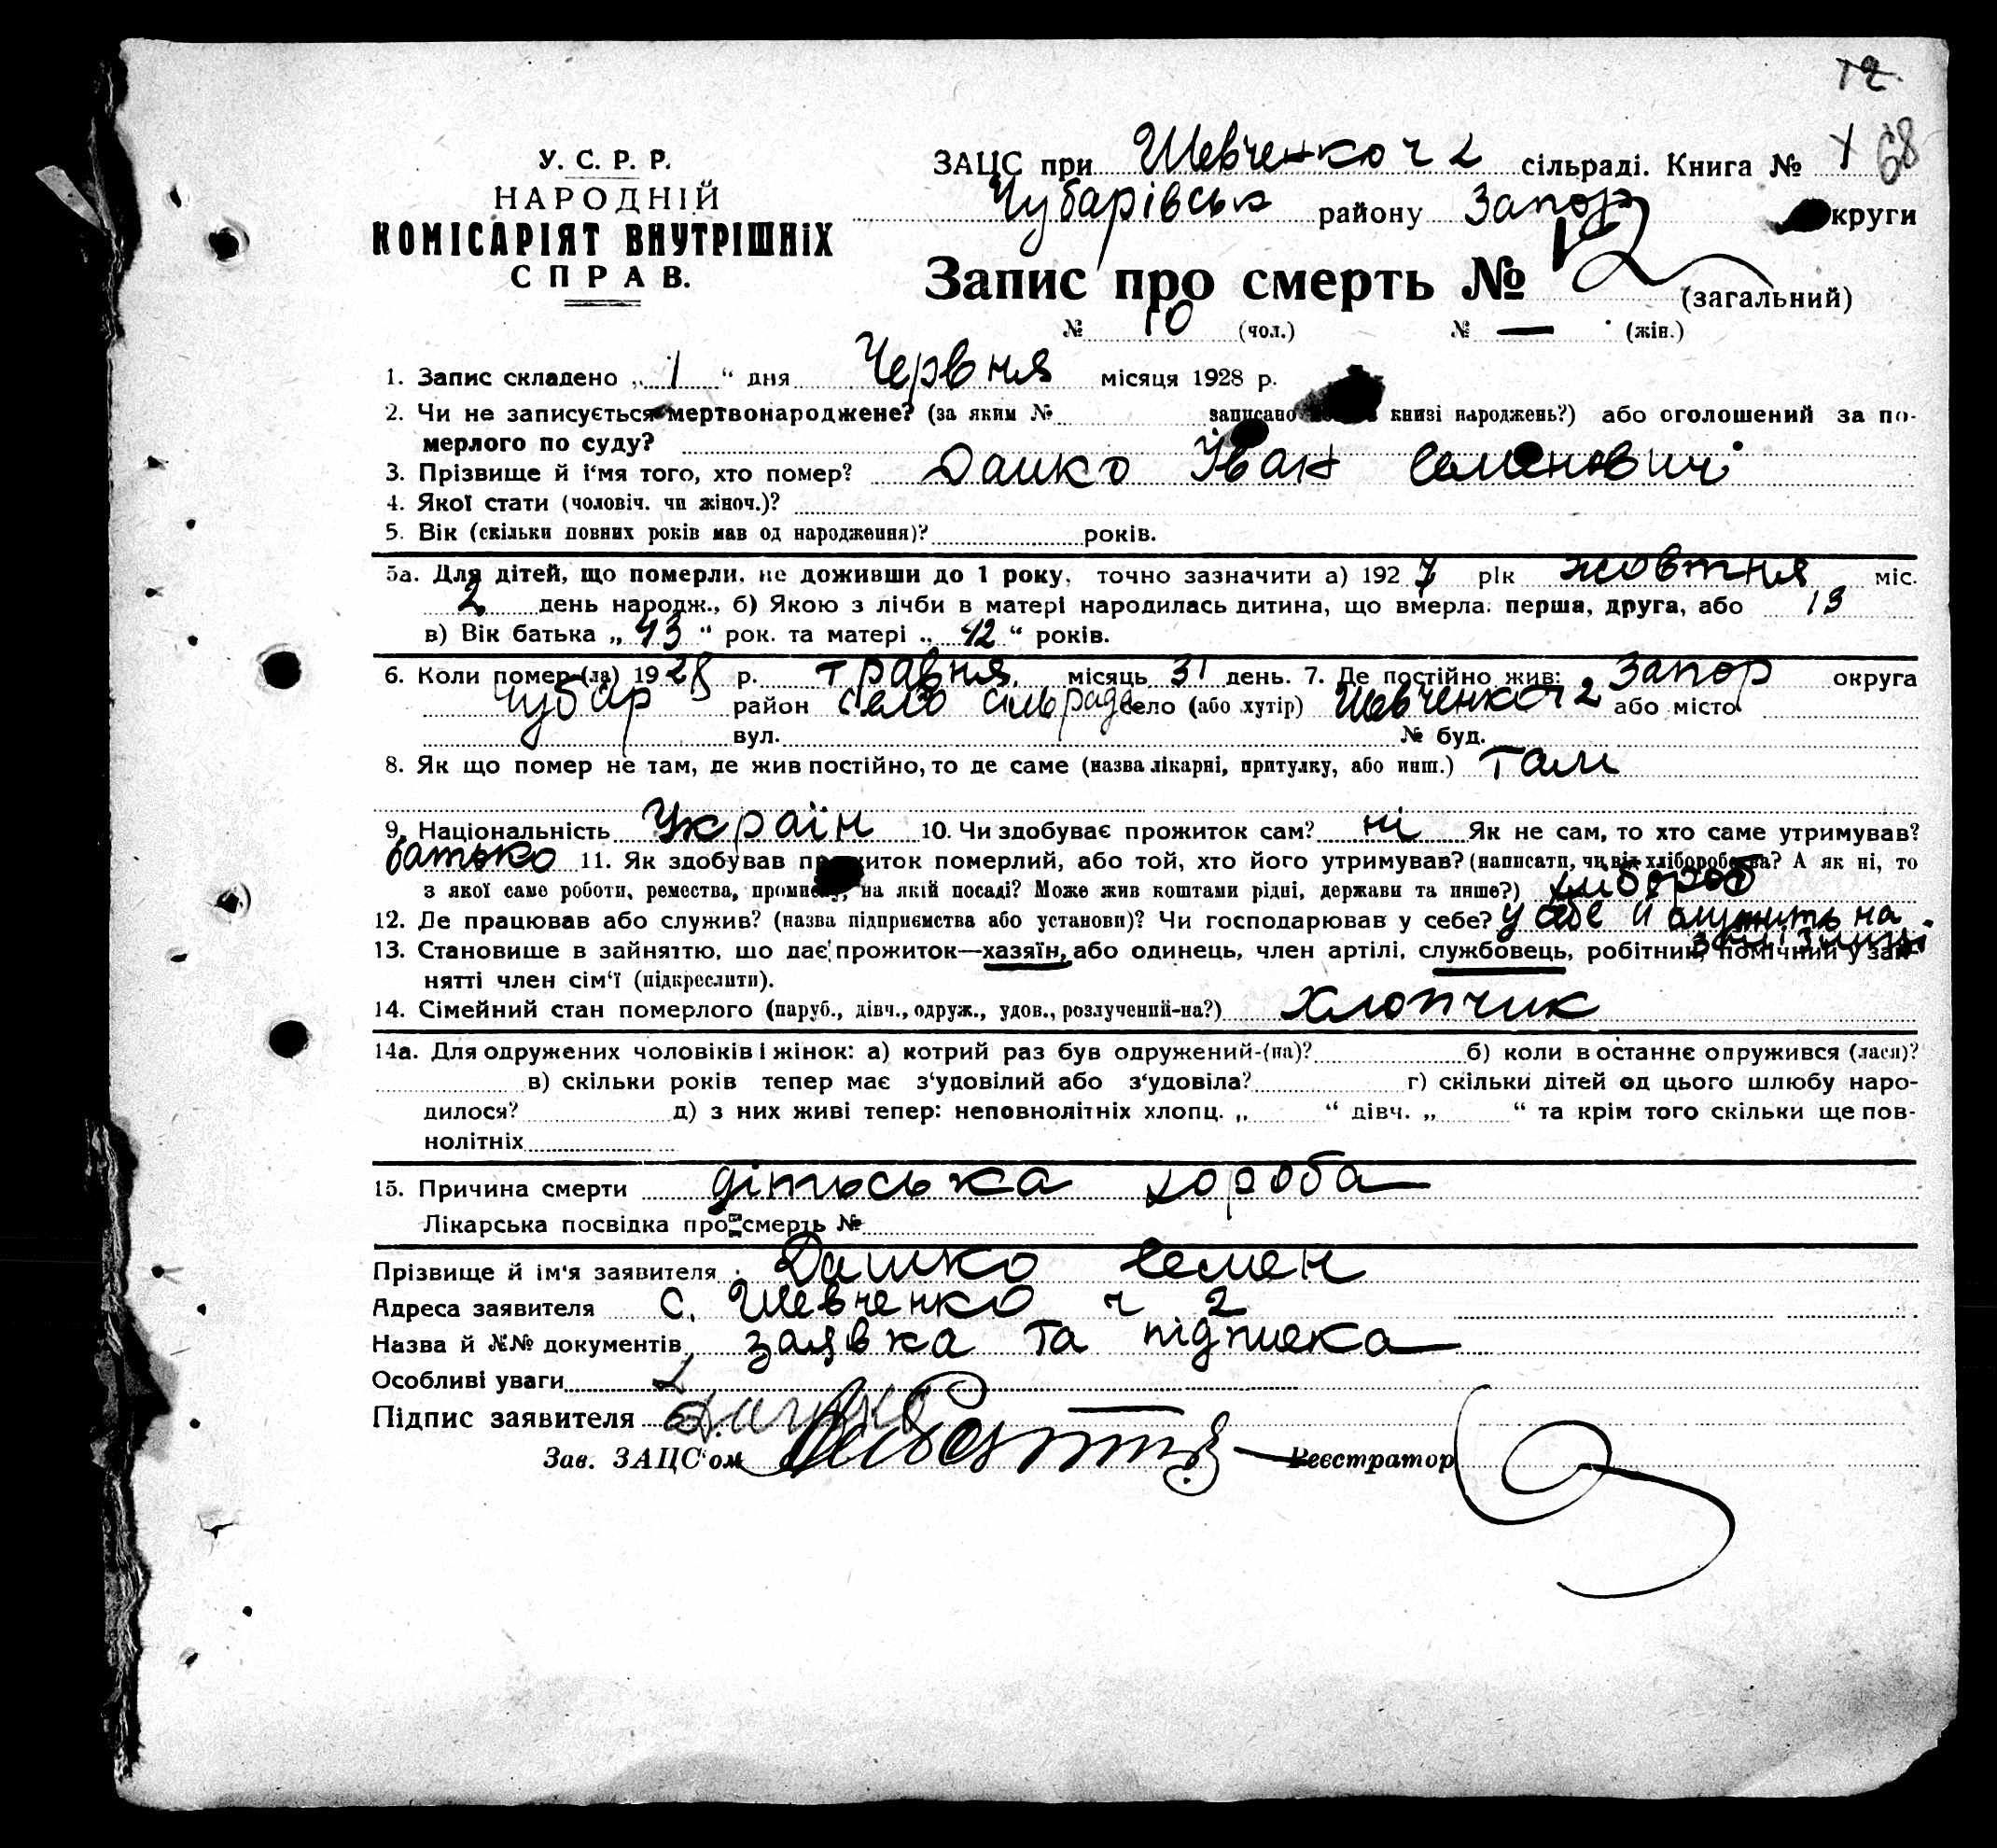 12
У. С. Р. Р.
НАРОДНІЙ
КОМІСАРІЯТ ВНУТРІШНІХ
СПРАВ.
ЗАЦС при Шевченко ч 2 сільраді. Книга № 68
Чубарівськ району Запор округи
Запис про смерть № 12 (загальний)
№ 10 (чол.) № — (жін.)
1. Запис складено „ 1 “ дня Червня місяця 1928 р.
2. Чи не записується мертвонароджене? (за яким № записано в книзі народжень?) або оголошений за по-
мерлого по суду?
3. Прізвище й і‘мя того, хто помер? Дашко Іван Семенович
4. Якої стати (чоловіч. чи жіноч.)?
5. Вік (скільки повних років мав од народження)? років.
5а. Для дітей, що померли, не доживши до 1 року, точно зазначити а) 1927 рік жовтня міс.
2 день народж., б) Якою з лічби в матері народилась дитина, що вмерла: перша, друга, або 13
в) Вік батька „ 43 “ рок. та матері „ 42 “ років.
6. Коли помер (ла) 1928 р. травня місяць 31 день. 7. Де постійно жив: Запор округа
Чубар район село сільрада село (або хутір) Шевченко ч 2 або місто
вул. № буд.
8. Як що помер не там, де жив постійно, то де саме (назва лікарні, притулку, або инш.) Там
9. Національність Україн 10. Чи здобуває прожиток сам? ні Як не сам, то хто саме утримував?
батько 11. Як здобував прожиток померлий, або той, хто його утримував? (написати, чи від хліборобства? А як ні, то
з якої саме роботи, ремества, промислу, на якій посаді? Може жив коштами рідні, держави та инше?) хлібороб
12. Де працював або служив? (назва підприємства або установи)? Чи господарював у себе? у себе й служить на
залізниці
13. Становище в зайняттю, що дає прожиток—хазяїн, або одинець, член артілі, службовець, робітник, помічний у зай-
нятті член сім‘ї (підкреслити).
14. Сімейний стан померлого (паруб., дівч., одруж., удов., розлучений-на?) хлопчик
14а. Для одружених чоловіків і жінок: а) котрий раз був одружений-(на)? б) коли в останнє опружився (лася)?
в) скільки років тепер має з‘удовілий або з‘удовіла? г) скільки дітей од цього шлюбу наро-
дилося? д) з них живі тепер: неповнолітніх хлопц. „ “ дівч. „ “ та крім того скільки ще пов-
нолітніх
15. Причина смерти дітьська хороба
Лікарська посвідка про смерть №
Прізвище й ім‘я заявителя Дашко Семен
Адреса заявителя с. Шевченко ч 2
Назва й №№ документів заявка та підписка
Особливі уваги
Підпис заявителя Дашко
Зав. ЗАЦС‘ом Реєстратор